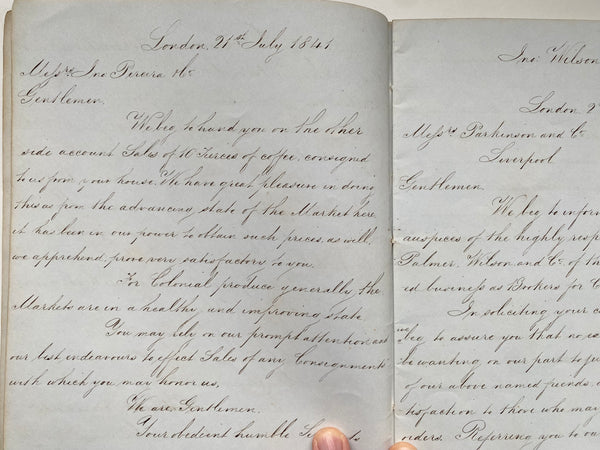 London, 21st July 1841
Messrs. Jno Pereira & Co.
Gentlemen,
We beg to hand you on the other
side account Sales of 10 Tierces of coffee, consigned
to us from your house. We have great pleasure in doing
this as from the advancing state of the Market here
it has been in our power to obtain such prices, as will,
we apprehend, prove very satisfactory to you.
For Colonial produce generally, the
Markets are in a healthy and improving state
You may rely on our prompt attention and
our best endeavours to effect Sales of any Consignments
with which you may honor us,
We are, Gentlemen,
Your obedient humble
Jno: Wilson
London
Messrs Parkinson and Co.
Liverpool
Gentlemen,
We beg to inform
auspices of the highly resp
Palmer, Wilson, and Co. of th
ed business as Brokers for C
In soliciting your c
we beg to assure you that no ex
be wanting, on our part to p
of our above named friends, a
tisfaction to those who may
orders. Referring you to ou